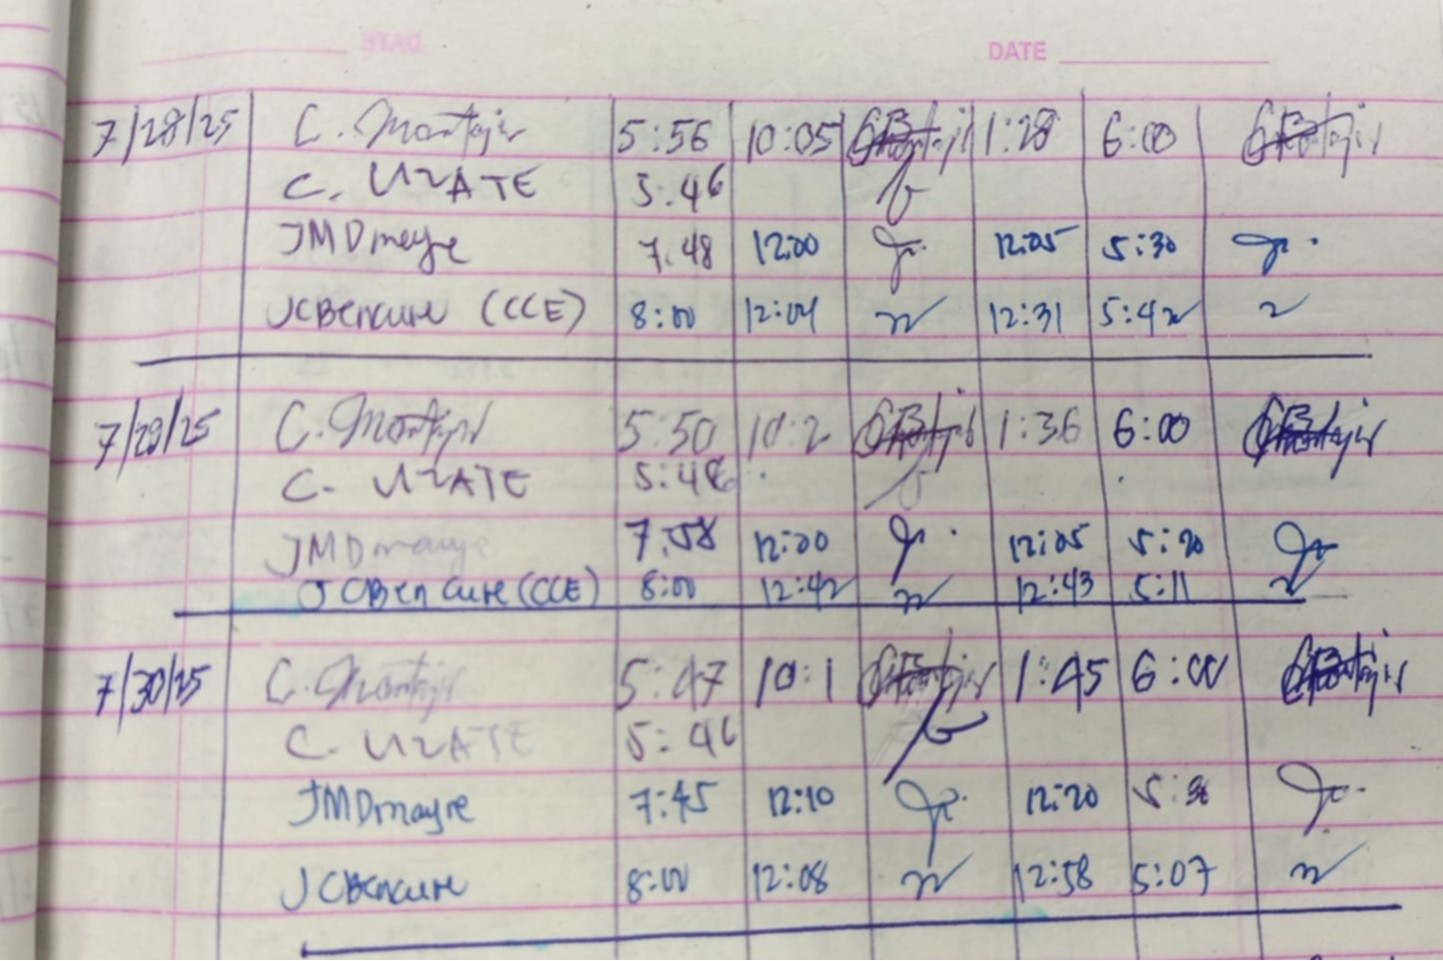 DATE
7/28/25 C. Montajir 5:56 10:05 1:28 6:00
C. UZATE 5:46
JMDmayre 7:48 12:00 12:05 5:30
JCBencure (CCE) 8:00 12:04 12:31 5:42
7/29/25 C. Montajir 5:50 10:2 1:36 6:00
C. UZATE 5:48
JMDmayre 7:58 12:00 12:05 5:20
JCBencure (CCE) 8:00 12:42 12:43 5:11
7/30/25 C. Montajir 5:47 10:1 1:45 6:00
C. UZATE 5:46
JMDmayre 7:45 12:10 12:20
JCBencure 8:00 12:08 12:58 5:07